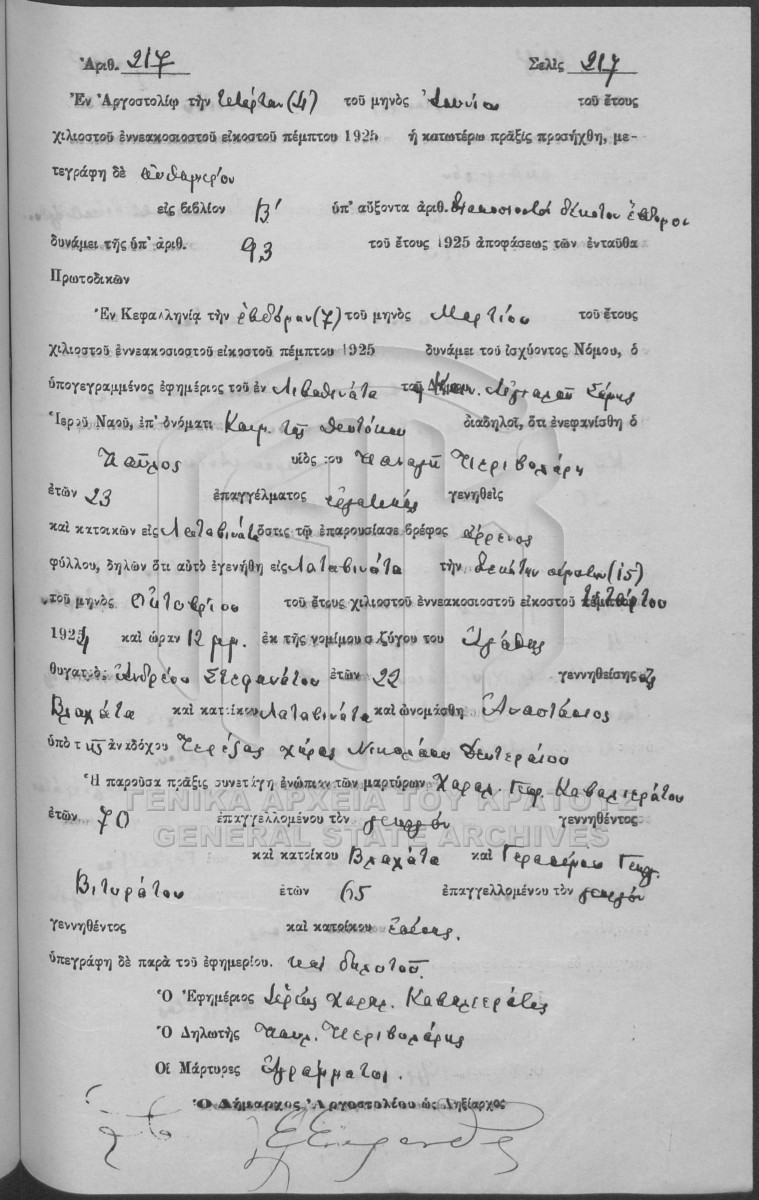 Ἀριθ. 217 Σελὶς 217
Ἐν Ἀργοστολίῳ τὴν τετάρτην (4) τοῦ μηνὸς Ἰουνίου τοῦ ἔτους
χιλιοστοῦ ἐννεακοσιοστοῦ εἰκοστοῦ πέμπτου 1925 ἡ κατωτέρω πρᾶξις προσήχθη, με-
τεγράφη δὲ αὐθημερόν
εἰς βιβλίον Β' ὑπ' αὔξοντα ἀριθ. διακοσιοστὸν δέκατον ἕβδομον
δυνάμει τῆς ὑπ' ἀριθ. 93 τοῦ ἔτους 1925 ἀποφάσεως τῶν ἐνταῦθα
Πρωτοδικῶν
Ἐν Κεφαλληνίᾳ τὴν ἑβδόμην (7) τοῦ μηνὸς Μαρτίου τοῦ ἔτους
χιλιοστοῦ ἐννεακοσιοστοῦ εἰκοστοῦ πέμπτου 1925 δυνάμει τοῦ ἰσχύοντος Νόμου, ὁ
ὑπογεγραμμένος ἐφημέριος τοῦ ἐν Κοιν. Αἰγιαλοῦ Σάμης
Ἱεροῦ Ναοῦ, ἐπ' ὀνόματι Κοιμ. τῆς Θεοτόκου διαδηλοῖ, ὅτι ἐνεφανίσθη ὁ
Παῦλος υἱὸς του Παναγῆ Περιβολάρη
ἐτῶν 23 ἐπαγγέλματος ἐργατικὸς γενηθεὶς
καὶ κατοικῶν εἰς Λαταβινάτα ὅστις τῷ ἐπαρουσίασε βρέφος ἄρρενος
φύλλου, δηλῶν ὅτι αὐτὸ ἐγενήθη εἰς Λαταβινάτα τὴν δεκάτην πέμπτην (15)
τοῦ μηνὸς Ὀκτωβρίου τοῦ ἔτους χιλιοστοῦ ἐννεακοσιοστοῦ εἰκοστοῦ τετάρτου
1924 καὶ ὥραν 12 μ.μ. ἐκ τῆς νομίμου συζύγου του Ἀγάθης
θυγατρὸς Ἀνδρέου Στεφανάτου ἐτῶν 22 γεννηθείσης εἰς
Βλαχάτα καὶ κατοίκου Λαταβινάτα καὶ ὠνομάσθη Ἀναστάσιος
ὑπὸ τῆς ἀναδόχου Τερέζας χήρας Νικολάου Δευτεραίου
Ἡ παροῦσα πρᾶξις συνετάγη ἐνώπιον τῶν μαρτύρων Χαραλ. Γερ. Καβαλιεράτου
ἐτῶν 70 ἐπαγγελλομένου τὸν γεωργόν γεννηθέντος
καὶ κατοίκου Βλαχάτα καὶ Γερασίμου Γεωργ.
Βιτωράτου ἐτῶν 65 ἐπαγγελλομένου τὸν γεωργόν
γεννηθέντος καὶ κατοίκου ἐπίσης.
ὑπεγράφη δὲ παρὰ τοῦ ἐφημερίου. καὶ δηλωτοῦ.
Ὁ Ἐφημέριος Ἱερεὺς Χαραλ. Καβαλιεράτος
Ὁ Δηλωτὴς Παυλ. Περιβολάρης
Οἱ Μάρτυρες Ἀγράμματοι.
Ὁ Δήμαρχος Ἀργοστολίου ὡς Ληξίαρχος
ΓΕΝΙΚΑ ΑΡΧΕΙΑ ΤΟΥ ΚΡΑΤΟΥΣ
GENERAL STATE ARCHIVES